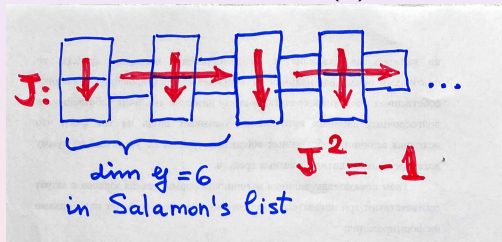 J: ...
dim g = 6
in Salamon's list
J² = -1